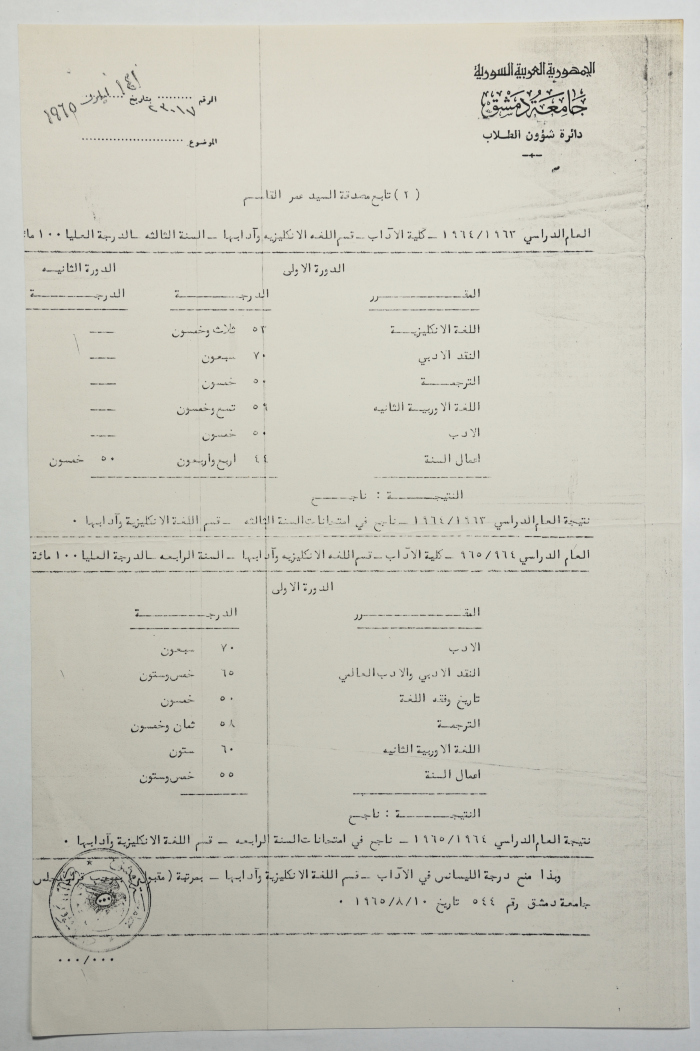 الجمهورية العربية السورية
جامعة دمشق
دائرة شؤون الطلاب
الرقم ........ بتاريخ ١٩٦٥
٢٣٠١٧
الموضوع
( ٢ ) تابع مصدقة السيد عمر القاسم
العام الدراسي ١٩٦٤/١٩٦٣ - كلية الآداب - قسم اللغه الانكليزيه وآدابها - السنة الثالثه - الدرجة العليا ١٠٠ مائ
الدورة الاولى الدورة الثانيه
المقرر الدرجة الدرجة
اللغة الانكليزية ٥٣ ثلاث وخمسون ——
النقد الادبي ٧٠ سبعون ——
الترجمة ٥٠ خمسون ——
اللغة الاوربية الثانيه ٥٩ تسع وخمسون ——
الادب ٥٠ خمسون ——
اعمال السنة ٤٤ اربع واربعون ٥٠ خمسون
النتيجة : ناجح
نتيجة العام الدراسي ١٩٦٤/١٩٦٣ - ناجح في امتحانات السنة الثالثه - قسم اللغة الانكليزية وآدابها .
العام الدراسي ٩٦٥/٩٦٤ - كلية الآداب - قسم اللغه الانكليزيه وآدابها - السنة الرابعه - الدرجة العليا ١٠٠ مائة
الدورة الاولى
المقرر الدرجة
الادب ٧٠ سبعون
النقد الادبي والادب العالمي ٦٥ خمس وستون
تاريخ وفقه اللغة ٥٠ خمسون
الترجمة ٥٨ ثمان وخمسون
اللغة الاوربية الثانيه ٦٠ ستون
اعمال السنة ٥٥ خمس وستون
النتيجة : ناجح
نتيجة العام الدراسي ١٩٦٥/١٩٦٤ - ناجح في امتحانات السنة الرابعه - قسم اللغة الانكليزية وآدابها .
وبذا منح درجة الليسانس في الآداب - قسم اللغة الانكليزية وآدابها - بمرتبة ( مقبول بموجب قرار مجلس
جامعة دمشق رقم ٥٤٤ تاريخ ١٩٦٥/٨/١٠ .
٠٠٠/٠٠٠